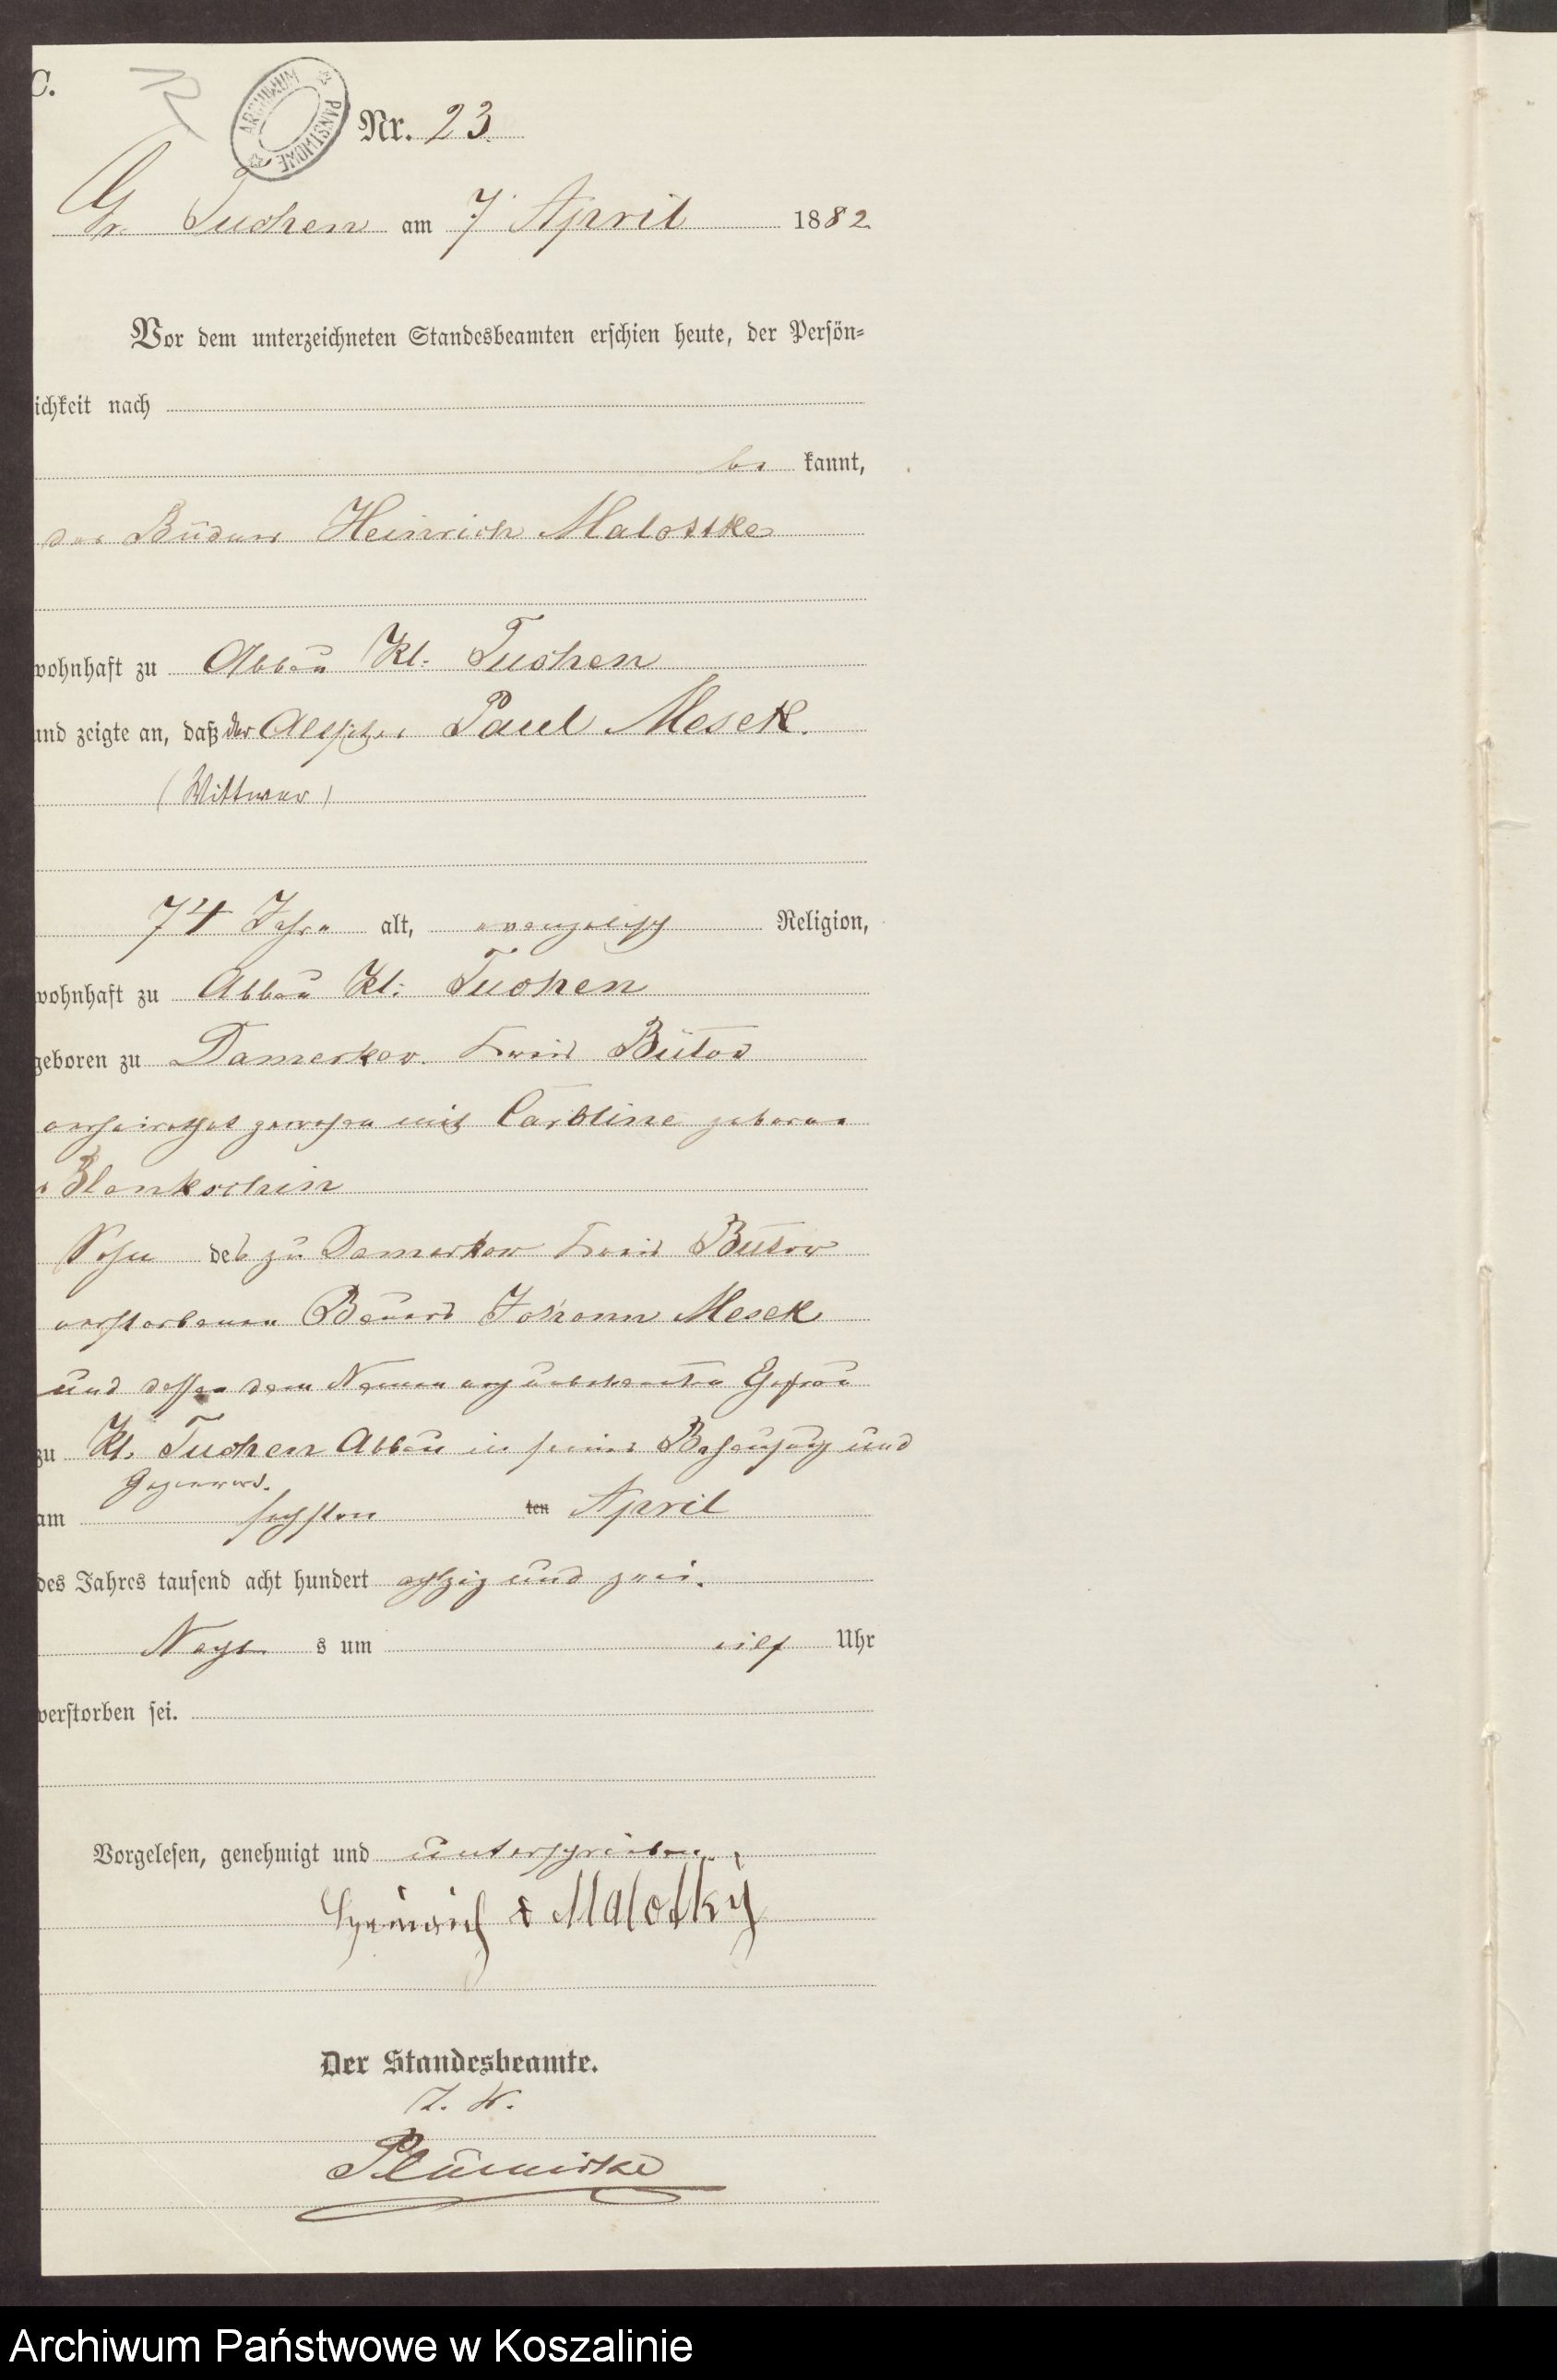 C.
ARCHIWUM PAŃSTWOWE
Nr. 23
Gr. Tuchen am 7. April 1882.
Vor dem unterzeichneten Standesbeamten erschien heute, der Persön-
lichkeit nach
be kannt,
der Büdner Heinrich Malottke
wohnhaft zu Abbau Kl. Tuchen
und zeigte an, daß der Altsitzer Paul Mesek.
(Wittwer)
74 Jahre alt, evangelisch Religion,
wohnhaft zu Abbau Kl. Tuchen
geboren zu Damerkow Kreis Bütow
verheirathet gewesen mit Caroline geborene
Sohn des zu Damerkow Kreis Bütow
verstorbenen Bauers Johann Mesek
und dessen dem Namen nach unbekannten Ehefrau
zu Kl. Tuchen Abbau in seiner Behausung und
Gegenwart.
am sechsten ten April
des Jahres tausend acht hundert achtzig und zwei.
Nachts um eilf Uhr
verstorben sei.
Vorgelesen, genehmigt und unterschrieben
Heinrich Malotky
Der Standesbeamte.
Archiwum Państwowe w Koszalinie